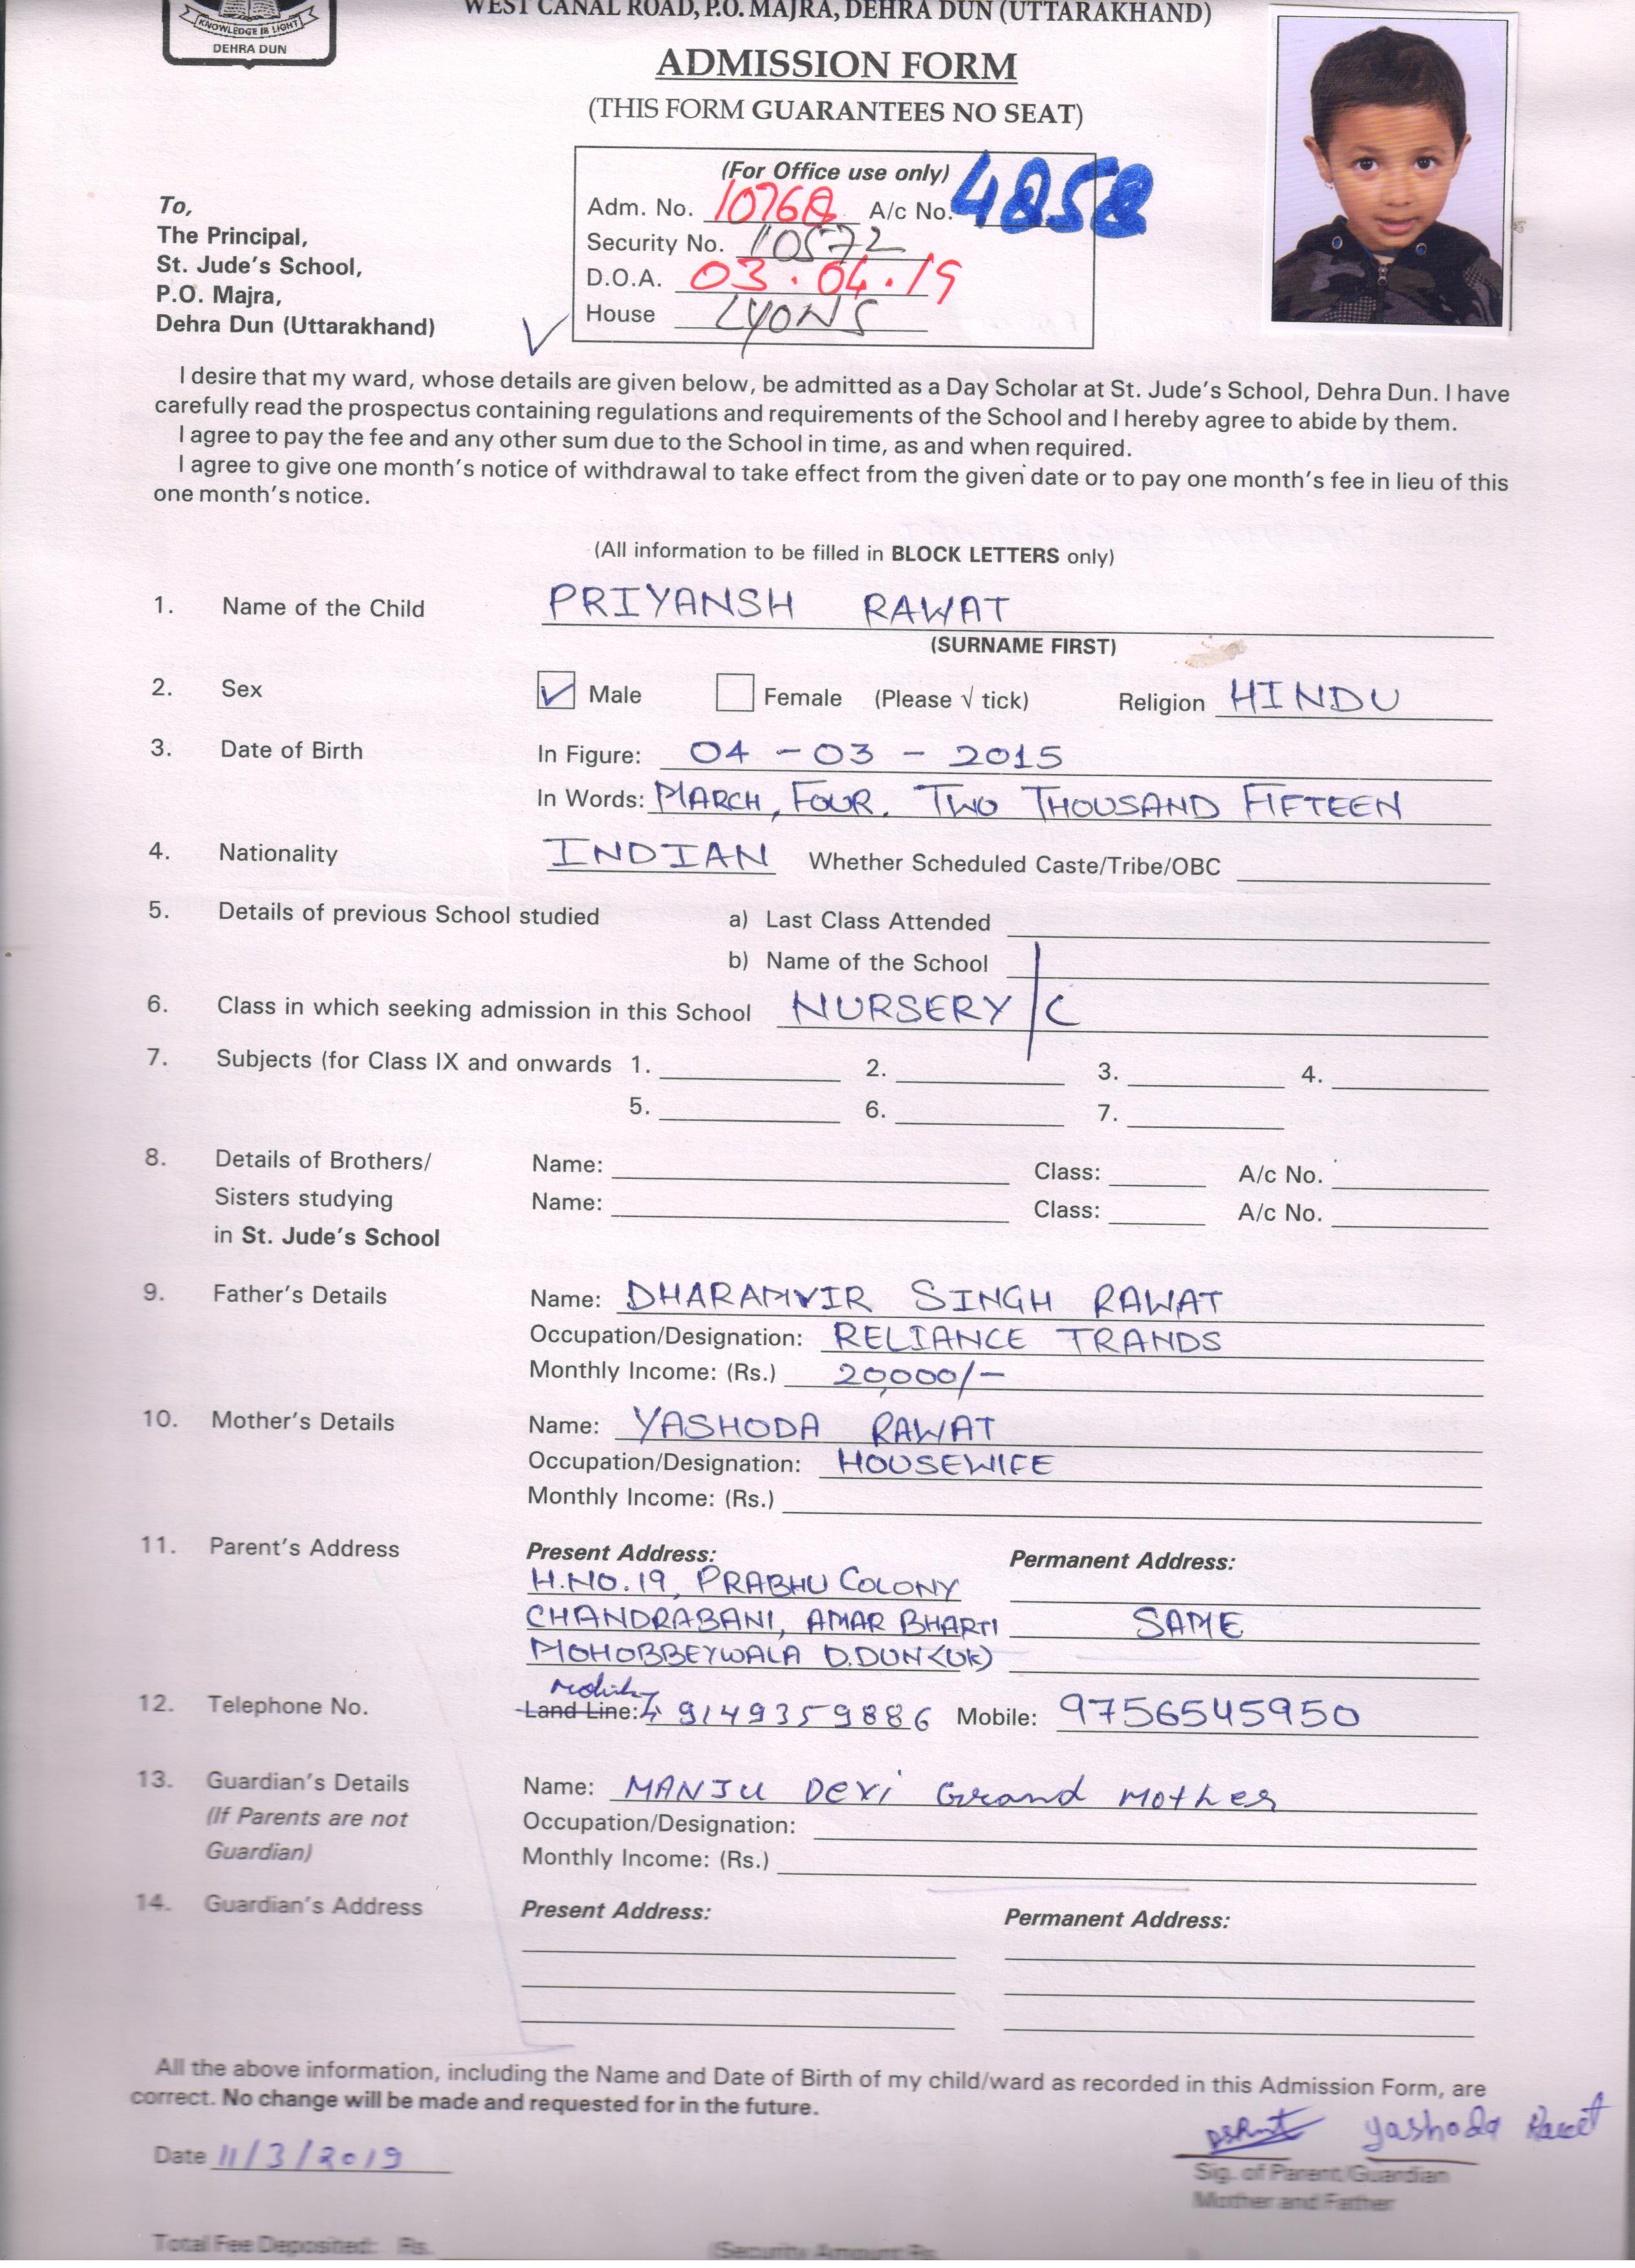 KNOWLEDGE IS LIGHT
DEHRA DUN
WEST CANAL ROAD, P.O. MAJRA, DEHRA DUN (UTTARAKHAND)
ADMISSION FORM
(THIS FORM GUARANTEES NO SEAT)
(For Office use only)
Adm. No. 10768 A/c No. 4858
Security No. 10572
D.O.A. 03.04.19
House LYONS
To,
The Principal,
St. Jude's School,
P.O. Majra,
Dehra Dun (Uttarakhand)
I desire that my ward, whose details are given below, be admitted as a Day Scholar at St. Jude's School, Dehra Dun. I have
carefully read the prospectus containing regulations and requirements of the School and I hereby agree to abide by them.
I agree to pay the fee and any other sum due to the School in time, as and when required.
I agree to give one month's notice of withdrawal to take effect from the given date or to pay one month's fee in lieu of this
one month's notice.
(All information to be filled in BLOCK LETTERS only)
1. Name of the Child PRIYANSH RAWAT
(SURNAME FIRST)
2. Sex Male Female (Please √ tick) Religion HINDU
3. Date of Birth In Figure: 04 - 03 - 2015
In Words: MARCH, FOUR. TWO THOUSAND FIFTEEN
4. Nationality INDIAN Whether Scheduled Caste/Tribe/OBC
5. Details of previous School studied a) Last Class Attended
b) Name of the School
6. Class in which seeking admission in this School NURSERY / C
7. Subjects (for Class IX and onwards 1. 2. 3. 4.
5. 6. 7.
8. Details of Brothers/ Name: Class: A/c No.
Sisters studying Name: Class: A/c No.
in St. Jude's School
9. Father's Details Name: DHARAMVIR SINGH RAWAT
Occupation/Designation: RELIANCE TRANDS
Monthly Income: (Rs.) 20,000/-
10. Mother's Details Name: YASHODA RAWAT
Occupation/Designation: HOUSEWIFE
Monthly Income: (Rs.)
11. Parent's Address Present Address: Permanent Address:
H.NO.19, PRABHU COLONY
CHANDRABANI, AMAR BHARTI SAME
MOHOBBEYWALA D.DUN(UK)
12. Telephone No. Land Line: 9149359886 Mobile: 9756545950
13. Guardian's Details Name: MANJU DEVi Grand Mother
(If Parents are not Occupation/Designation:
Guardian) Monthly Income: (Rs.)
14. Guardian's Address Present Address: Permanent Address:
All the above information, including the Name and Date of Birth of my child/ward as recorded in this Admission Form, are
correct. No change will be made and requested for in the future.
Yashoda Rawat
Date 11/3/2019
Sig. of Parent/Guardian
Mother and Father
Total Fee Deposited: Rs. (Security Amount Rs.